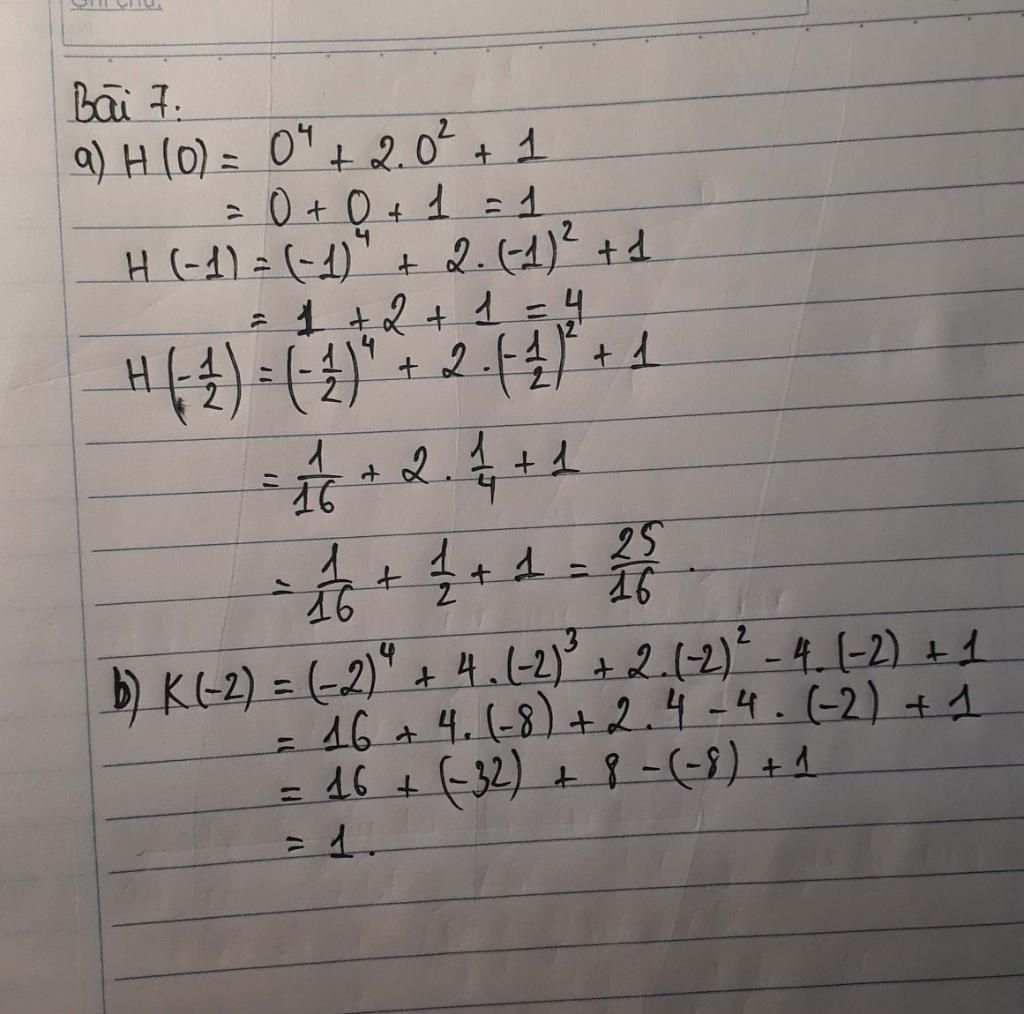 Ghi chú.
Bài 7:
a) H(0) = 0⁴ + 2.0² + 1
= 0 + 0 + 1 = 1
H(-1) = (-1)⁴ + 2.(-1)² + 1
= 1 + 2 + 1 = 4
H(-1/2) = (-1/2)⁴ + 2.(-1/2)² + 1
= 1/16 + 2 . 1/4 + 1
= 1/16 + 1/2 + 1 = 25/16 .
b) K(-2) = (-2)⁴ + 4.(-2)³ + 2.(-2)² - 4.(-2) + 1
= 16 + 4.(-8) + 2.4 - 4.(-2) + 1
= 16 + (-32) + 8 - (-8) + 1
= 1.